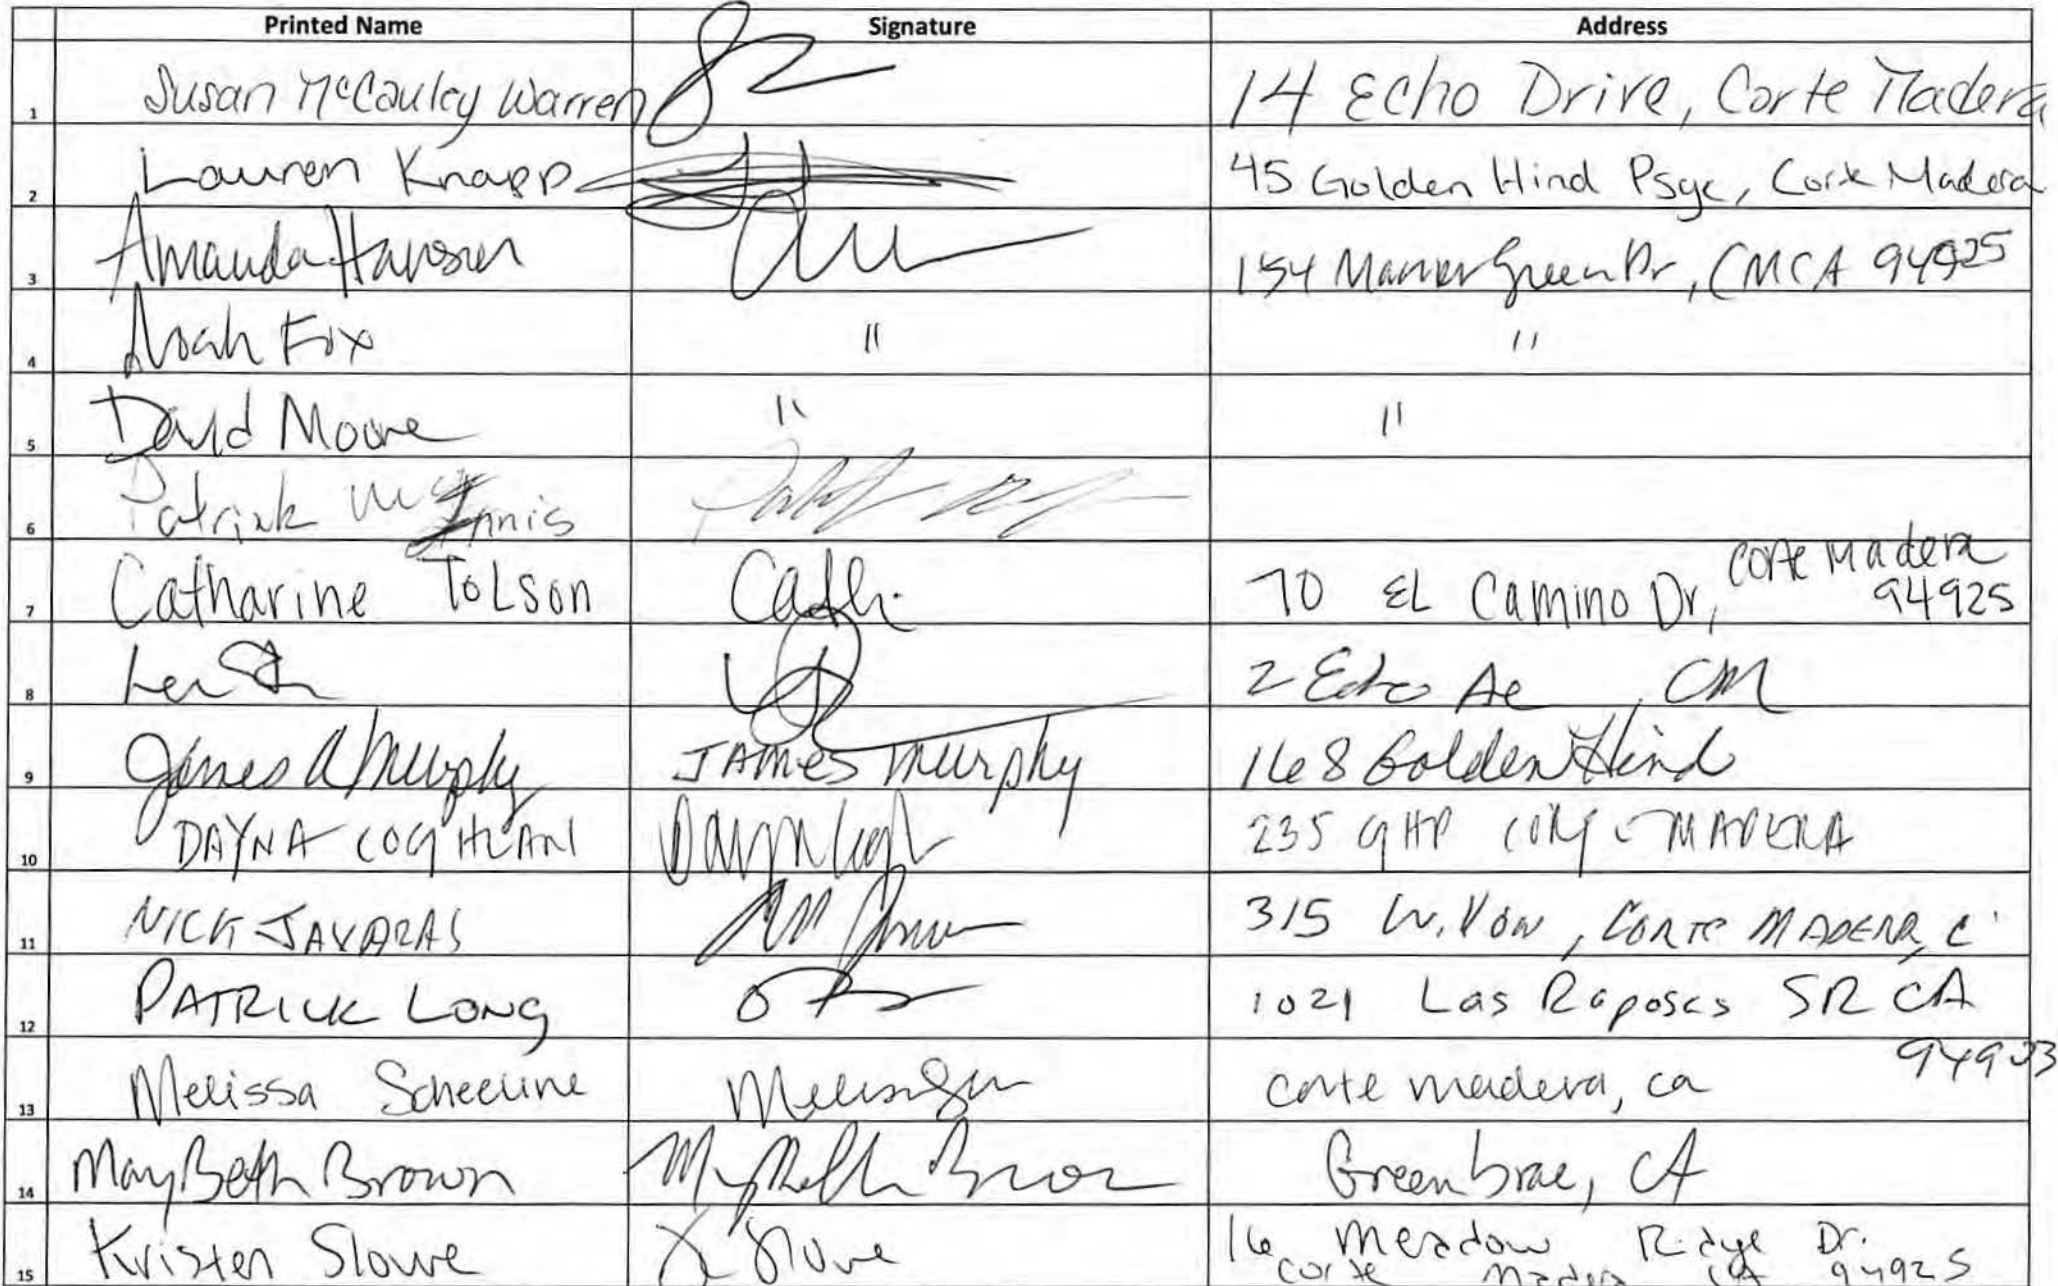 Printed Name Signature Address
1 Susan McCauley Warren 14 Echo Drive, Corte Madera
2 Lauren Knapp 45 Golden Hind Psge, Corte Madera
3 Amanda Hanson 154 Manor Green Dr, CMCA 94925
4 Noah Fox " "
5 David Moore " "
6 Patrick Innis
7 Catharine Tolson Cath 70 El Camino Dr, Corte Madera 94925
8 2 Echo Ae, CM
9 James A Murphy James Murphy 168 Golden Hind
10 DAYNA COGHLAN 235 GHP MADERA
11 NICK JAVARAS 315 Willow, CORTE MADERA, C
12 PATRICK LONG 1021 Las Raposas SR CA
94903
13 Melissa Scheeline corte madera, ca
14 MaryBeth Brown MaryBeth Brown Greenbrae, CA
15 Kristen Slowe K Slowe 16 Meadow Ridge Dr.
Corte Madera CA 94925